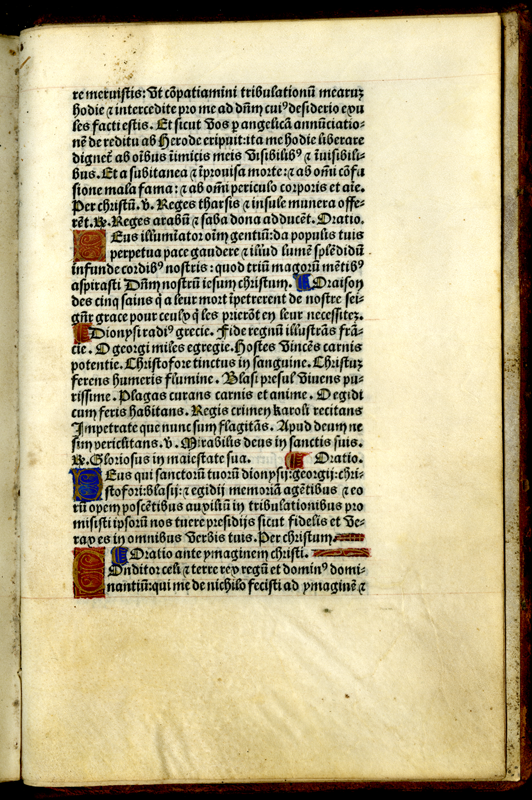 re meruistis: Vt cōpatiamini tribulationū mearuꝫ
hodie ⁊ intercedite pro me ad dūm cui⁹ desiderio exu
les facti estis. Et sicut Vos ꝑ angelicā annūciatio-
nē de reditu ab Herode eripuit: ita me hodie liberare
dignet̄ ab oībus īimicis meis Visibilib⁹ ⁊ īuisibili-
bus. Et a subitanea ⁊ īprouisa morte: ⁊ ab om̄i cōfu
sione mala fama: ⁊ ab om̄i periculo corporis et aīe.
Per christū. v. Reges tharsis ⁊ insule munera offe-
rēt. ꝶ. Reges arabū ⁊ saba dona adducēt. Oratio.
Deus illumīator oīm gentiū: da populis tuis
perpetua pace gaudere ⁊ illud lumē splēdidū
infunde cordib⁹ nostris: quod triū magorū mētib⁹
aspirasti Dn̄m nostrū iesum christum. Oraison
des cinq sains q̄ a leur mort īpetrerent de nostre sei-
gn̄r grace pour ceulx q̄ les prierōt en leur necessitez.
Dionysi radi⁹ grecie. Fide regnū illustrās frā-
cie. O georgi miles egregie. Hostes Vincēs carnis
potentie. Christofore tinctus in sanguine. Christuꝫ
ferens humeris flumine. Blasi presul Viuens pu-
rissime. Plagas curans carnis et anime. O egidi
cum feris habitans. Regis crimen karoli recitans
Impetrate que nunc sum flagitās. Apud deum ne
sim periclitans. v. Mirabilis deus in sanctis suis.
ꝶ. Gloriosus in maiestate sua. Oratio.
Deus qui sanctorū tuorū dionysij: georgij: chri-
stofori: blasij: ⁊ egidij memoriā agētibus ⁊ eo
rū opem poscētibus auxiliū in tribulationibus pro
misisti ipsorū nos tuere presidijs sicut fidelis et Ve-
rax es in omnibus Verbis tuis. Per christum.
Oratio ante ymaginem christi.
Conditor celi ⁊ terre rex regū et domin⁹ domi-
nantiū: qui me de nichilo fecisti ad ymaginē ⁊